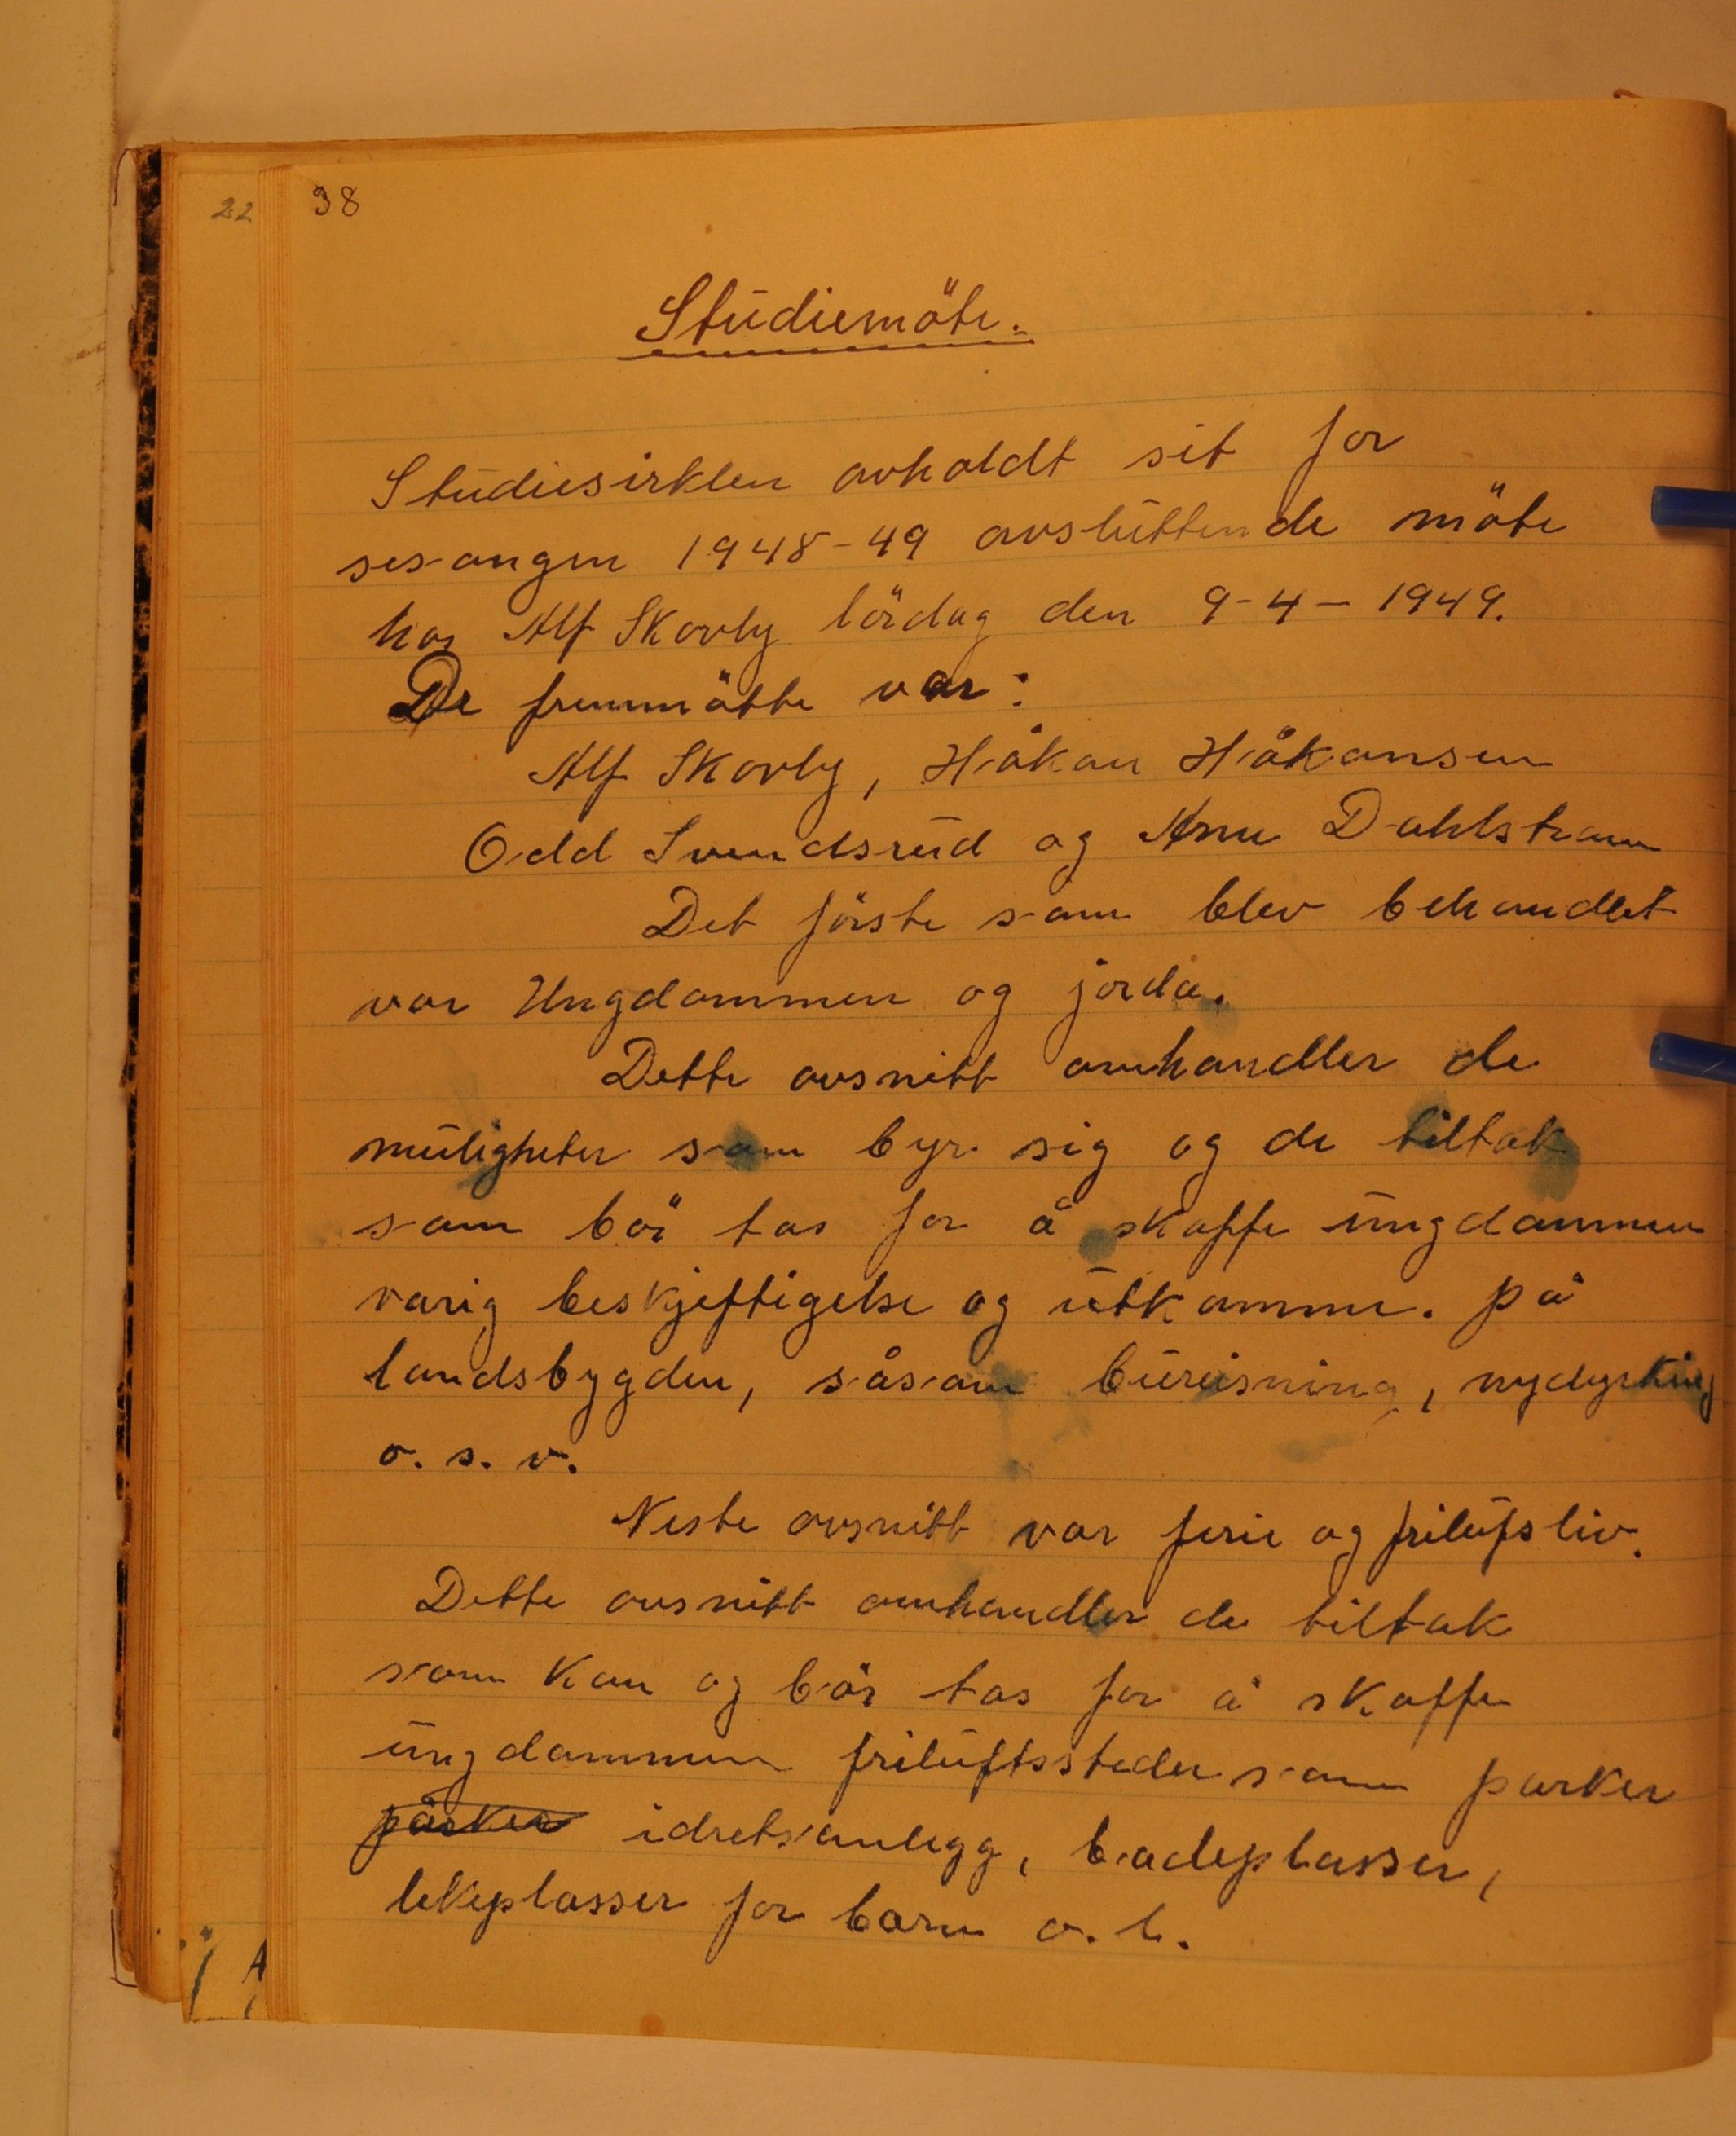 22 38
Studiemöte.
Studiesirklen avholdt sit for
sesongen 1948-49 avsluttende möte
hos Alf Skovly lördag den 9-4-1949.
De fremmötte var:
Alf Skovly, Håkon Håkonsen
Odd Svendsrud og Arne Dahlstrøm
Det förste som blev behandlet
var Ungdommen og jorda.
Dette avsnitt omhandler de
muligheter som byr sig og de tiltak
som bör tas for å skaffe ungdommen
varig beskjeftigelse og utkomme. på
landsbygden, såsom bureisning, nydyrking
o. s. v.
Neste avsnitt var ferie og frilufsliv.
Dette avsnitt omhandler de tiltak
som kan og bör tas for å skaffe
ungdommen friluftssteder som parker
parker idretsanlegg, badeplasser,
lekeplasser for barn o. l.